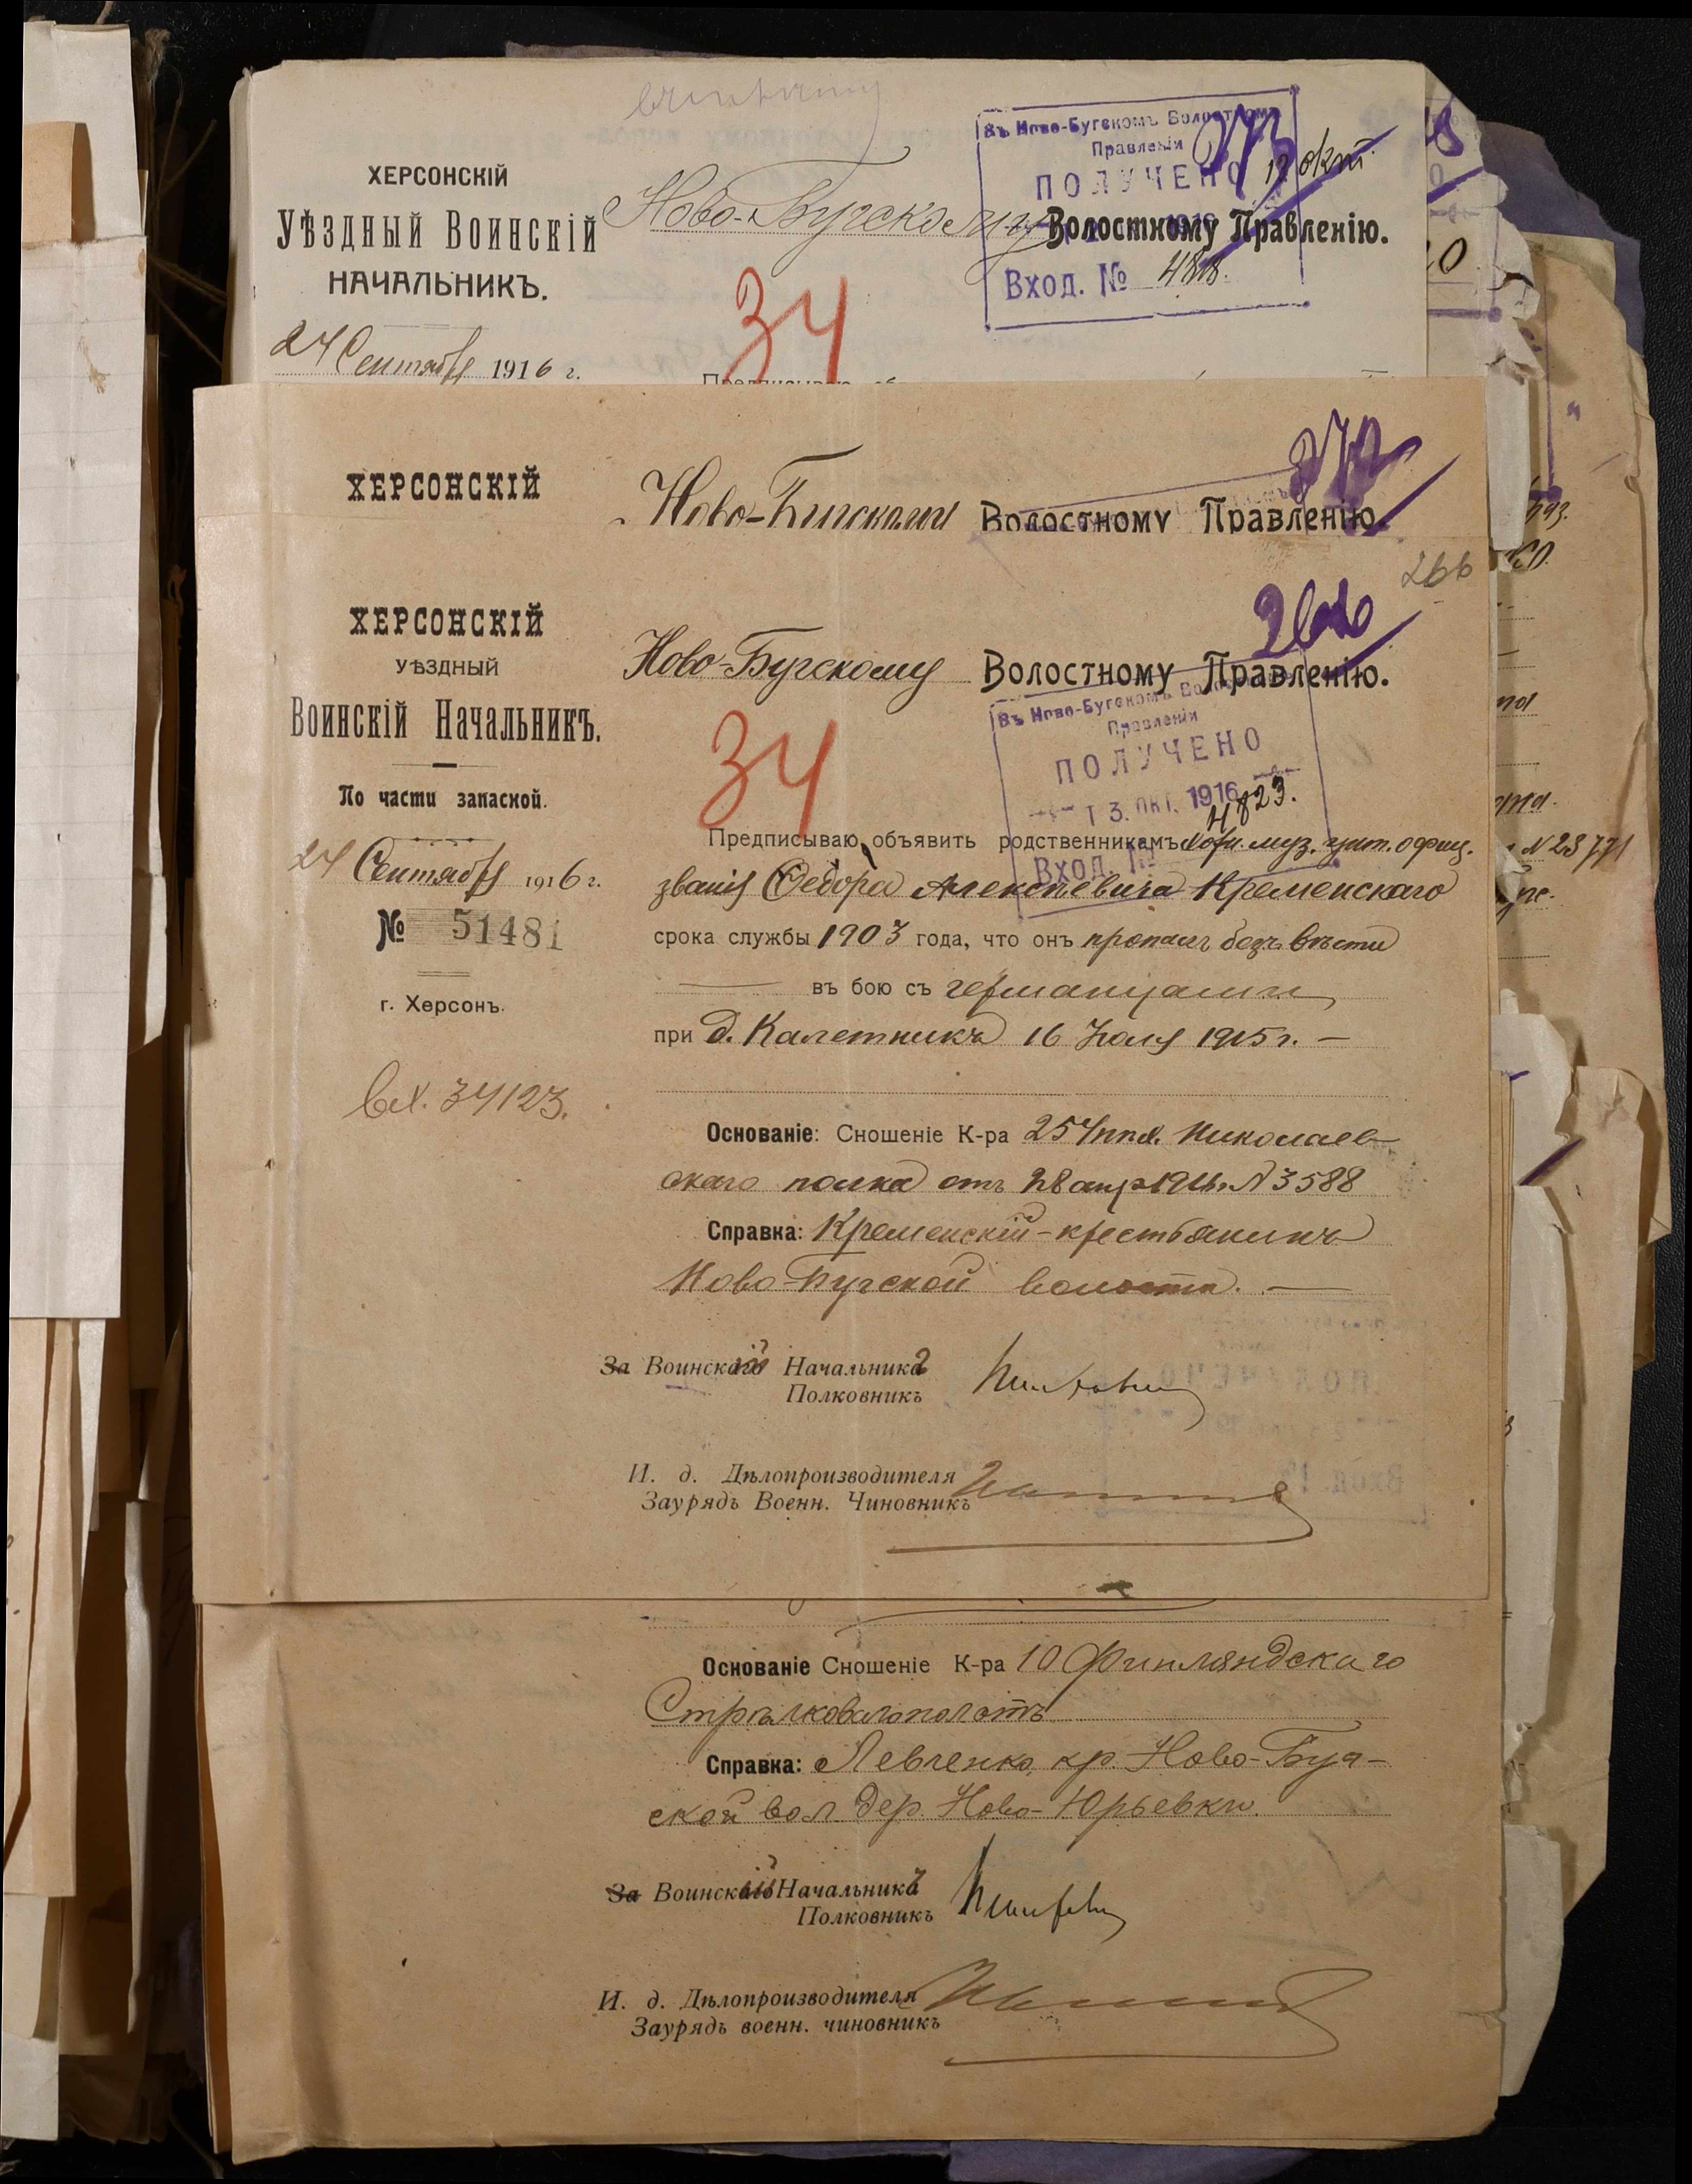 ХЕРСОНСКІЙ
УѢЗДНЫЙ ВОИНСКІЙ
НАЧАЛЬНИКЪ.
24 Сентября 1916 г.
Ново-Бугскому Волостному Правленію.
Въ Ново-Бугскомъ Волостномъ
Правленіи
273
12 окт.
ПОЛУЧЕНО
Вход. № 4818.
34
ХЕРСОНСКІЙ
Ново-Бугскому Волостному Правленію.
272
266
ХЕРСОНСКІЙ
УѢЗДНЫЙ
ВОИНСКІЙ НАЧАЛЬНИКЪ.
По части запасной.
24 Сентября 1916 г.
№ 51481
г. Херсонъ.
Вх. 34123.
266
Ново-Бугскому Волостному Правленію.
Въ Ново-Бугскомъ Волостномъ
Правленіи
ПОЛУЧЕНО
13. ОКТ. 1916
4823.
Вход. №
34
Предписываю объявить родственникамъ муз. унт. офиц.
званія Федора Алексѣевича Кременскаго
срока службы 1903 года, что онъ пропалъ безъ вѣсти
въ бою съ германцами
при д. Калетникъ 16 Іюля 1915 г. —
Основаніе: Сношеніе К-ра 254 пѣх. Николаев-
скаго полка отъ 28 апр 1916 г. № 3588
Справка: Кременскій - крестьянинъ
Ново-Бугской волости. —
За Воинскій Начальникъ
Полковникъ
И. д. Дѣлопроизводителя
Заурядъ Военн. Чиновникъ
Основаніе Сношеніе К-ра 10 Финляндскаго
Стрѣлковаго
Справка: Левченко кр. Ново-Буг-
ской вол дер. Ново-Юрьевки.
За Воинскій Начальникъ
Полковникъ
И. д. Дѣлопроизводителя
Заурядъ военн. чиновникъ
№ 23771